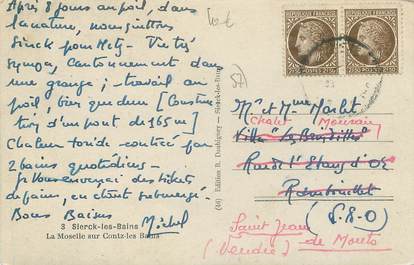 Après 8 jours au poil, dans
la nature, nous quittons
Sierck pour Metz - Vie très
sympa, Cantonnement dans
une grange ; travail au
poil, bien que dur [Construc
tion d'un pont de 165 m]
Chaleur torride contrée par
2 bains quotidiens -
Je vous envoyai des tickets
de pain,
Bons Baisers
Michel
3 Sierck-les-Bains
La Moselle sur Contz-les Bains
(46) Edition R. Doubignery - Sierck-les-Bains
REPUBLIQUE FRANÇAISE
REPUBLIQUE FRANÇAISE
Mr et Mme
Chalet
Villa
Rue de l'Etang d'Or
Rambouillet
(S-&-O)
Saint Jean
de Monts
(Vendée)